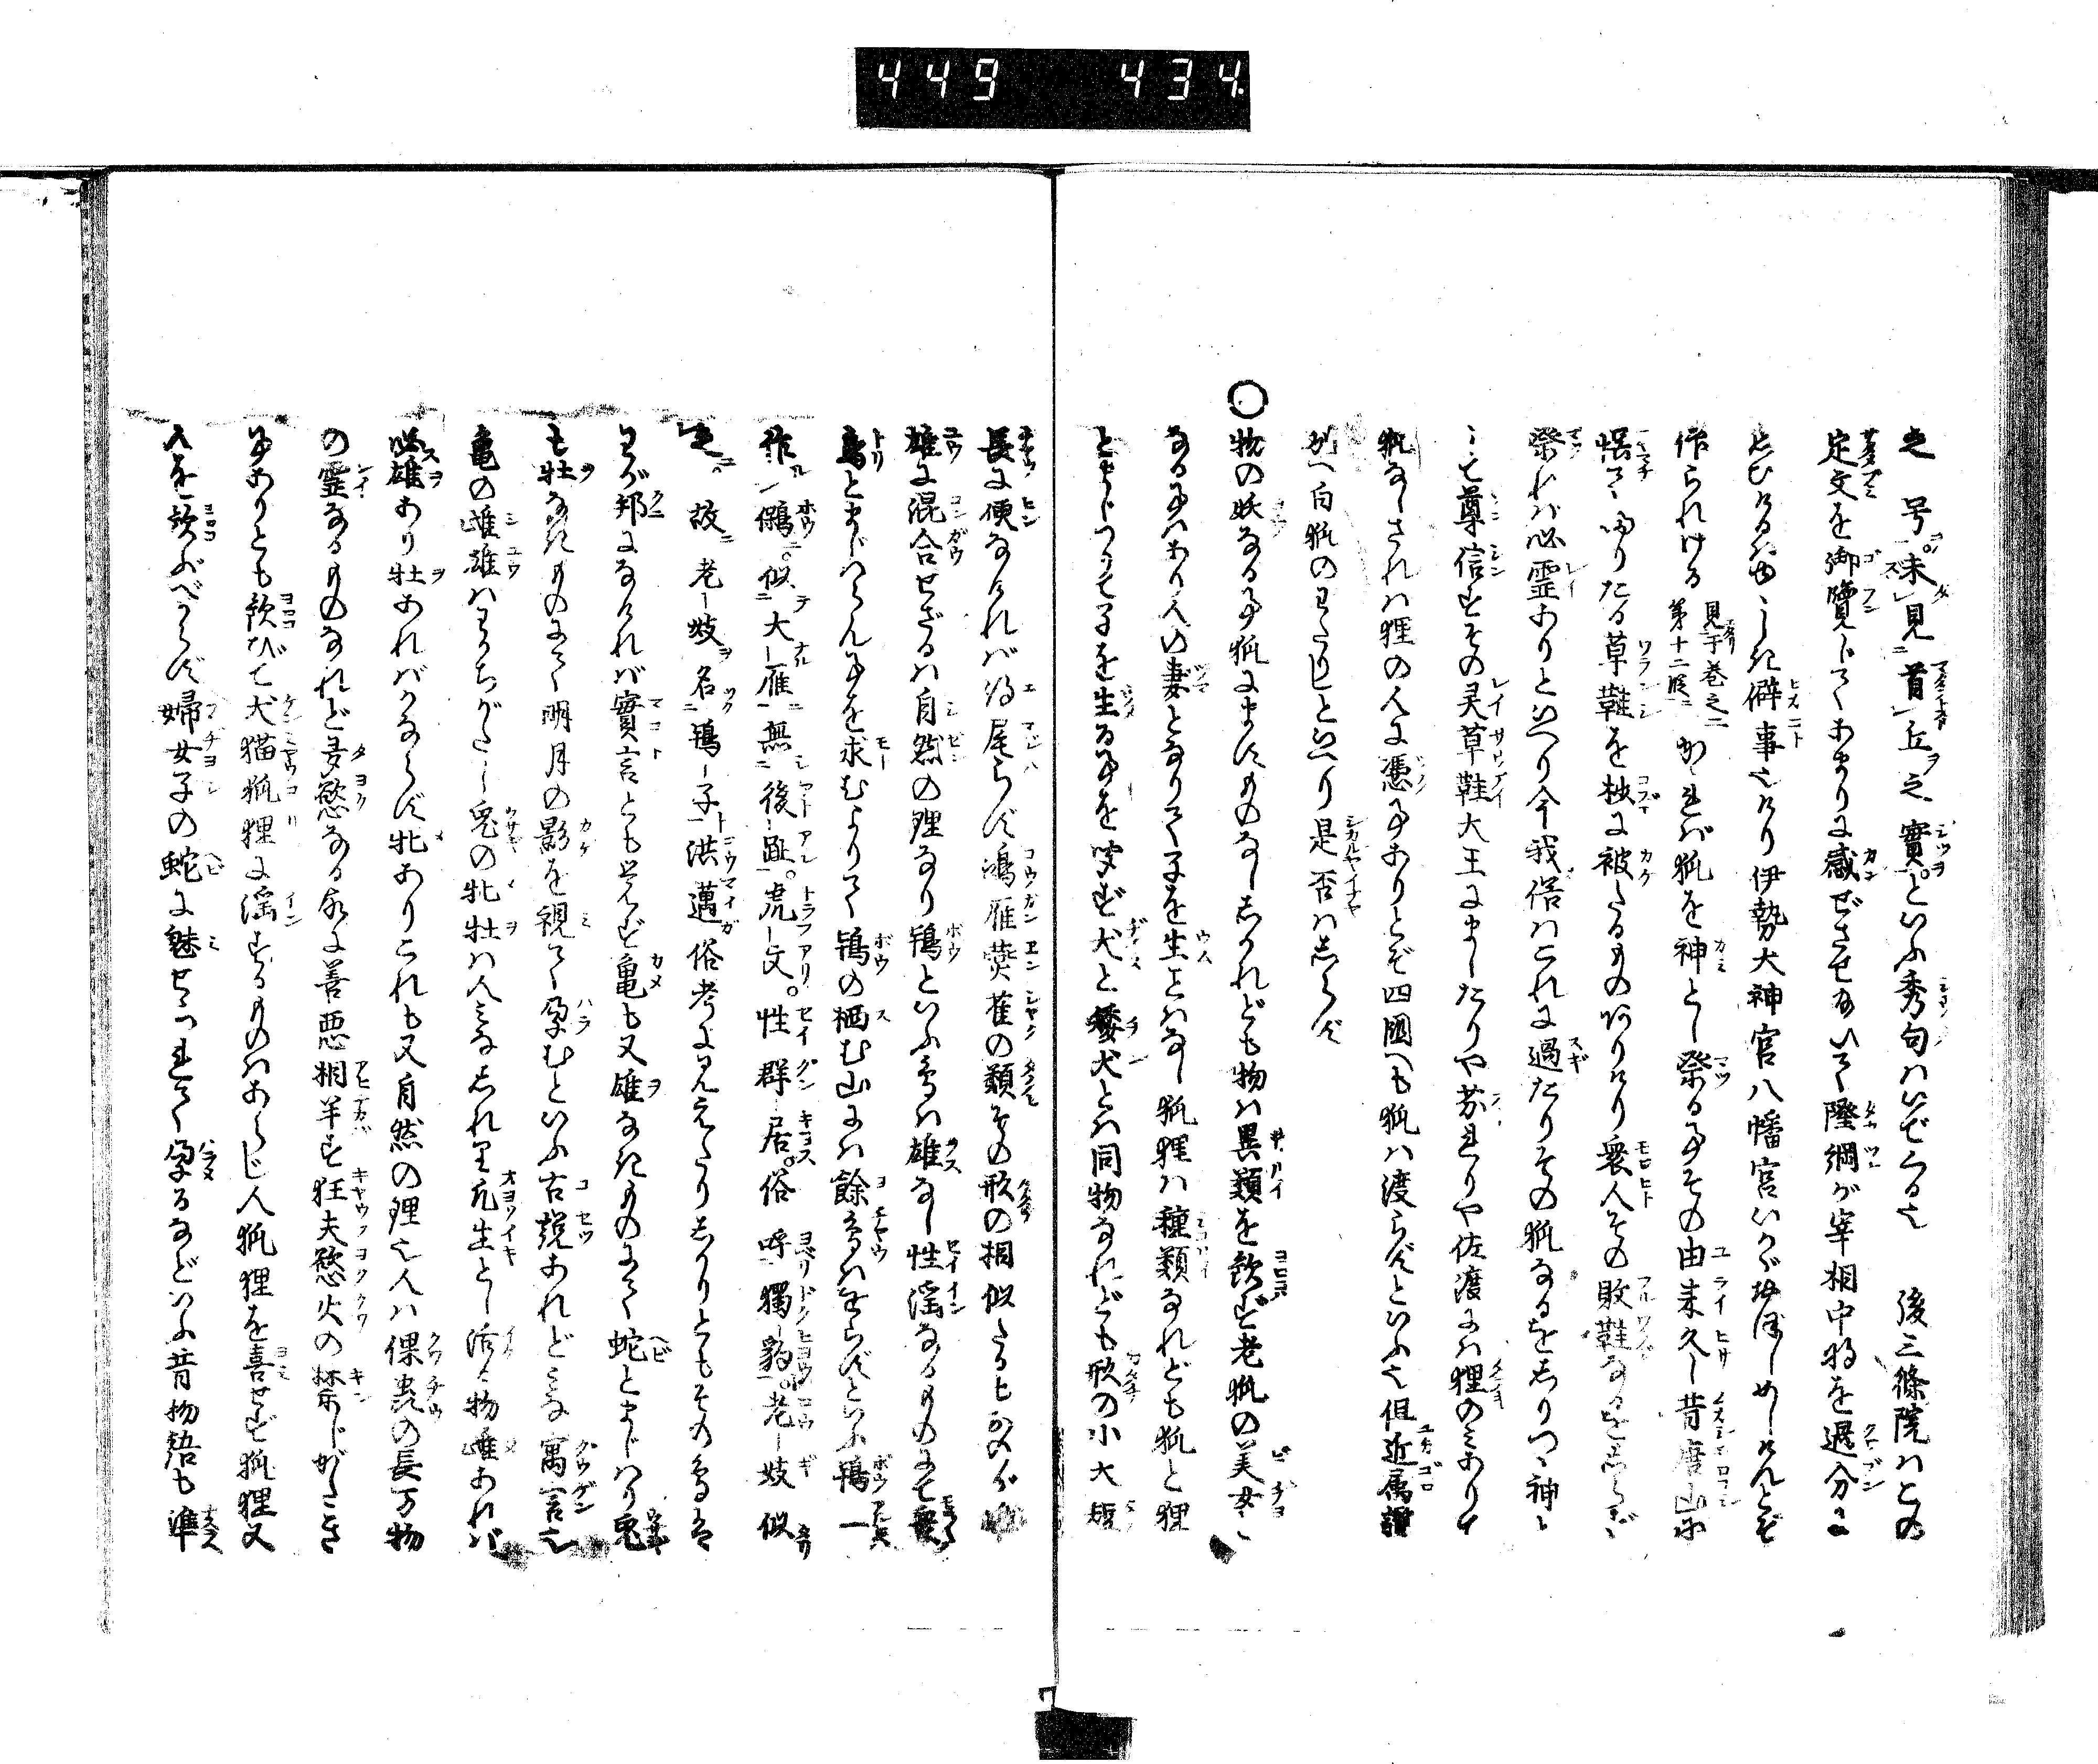 449 434
之号。未見首丘之實。といふ秀句はいでくる也 後三條院はこの
定文を御覽じてあまりに感ぜさせ給いて隆綱が宰相中将を過分に
思ひけるはゆゝしき僻事也けり伊勢大神宮八幡宮いかゞおぼしめしけんとぞ
作られける 見于巻之二第十二段ニ かゝれば狐を神とし祭る事その由来久し昔唐山に
悞て ゆりたる草鞋を枝に被たるもの ありけり衆人その敗鞋なるをしらず
祭れば必霊ありといへり今我俗はこれに過たりその狐なるをしりつゝ神と
して尊信すその灵草鞋大王にましたりや劣れりや佐渡には狸のみありて
狐なしされば狸の人に憑事ありとぞ四國へも狐は渡らずといふ也但近属讃
州へ白狐のわたりしといへり是否はしらず
○物の妖なる事狐にますものなししかれども物は異類を歓ず老狐の美女と
なる事はあり人の妻となりて子を生ことはなし狐狸は種類なれども狐と狸
とまじつりて子を生る事を聞ず犬と矮犬とは同物なれども形の小大短
長に便なければ得尾らず鴻雁燕雀の類その形の相似たるものゝ雌
雄に混合せざるは自然の理なり鴇といふ鳥は雄なし性淫なるものにて衆
鳥とまじはらん事を求むよりて鴇の栖む山には餘鳥はをらずといふ鴇一
作ル鴘ニ。似テ大雁ニ無シ後趾。虎文。性群居。俗呼獨豹。老妓似
之ニ。故ニ老妓ヲ名ク鴇子ト 洪邁ガ俗考に見えたりしかりともその鳥は
わが邦になければ實言とも覚ず亀も又雄なきものにて蛇とまじはり兎
も牡なきものにて明月の影を視て孕むといふ古説あれどみな寓言也
亀の雌雄はわかちがたし兎の牝牡は人みなしれり凡生とし活る物雌あれば
必雄あり牡あればかならず牝ありこれも又自然の理也人は倮蟲の長万物
の霊なるものなれど多慾なる故に善悪相半す狂夫慾火の禁じがたき
事ありとも歓びて犬猫狐狸に淫するものはあらじ人狐狸を喜せず狐狸又
人を歓ぶべからず婦女子の蛇に魅せられて孕るなどいふ昔物語も準